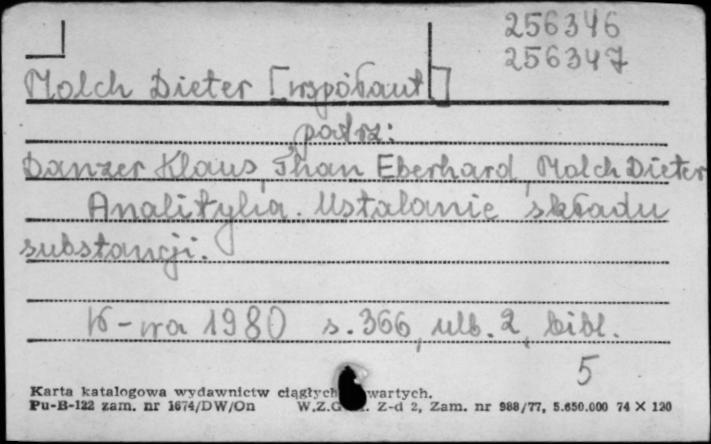 256346
256347
Molch Dieter [współaut]
patrz:
Danzer Klaus, Than Eberhard, Molch Dieter
Analityka. Ustalanie składu
substancji.
W-wa 1980 s. 366, nlb. 2, bibl.
5
Karta katalogowa wydawnictw ciągłych wartych.
Pu-B-122 zam. nr 1674/DW/On W.Z.G Z-d 2, Zam. nr 988/77, 5.650.000 74 × 120